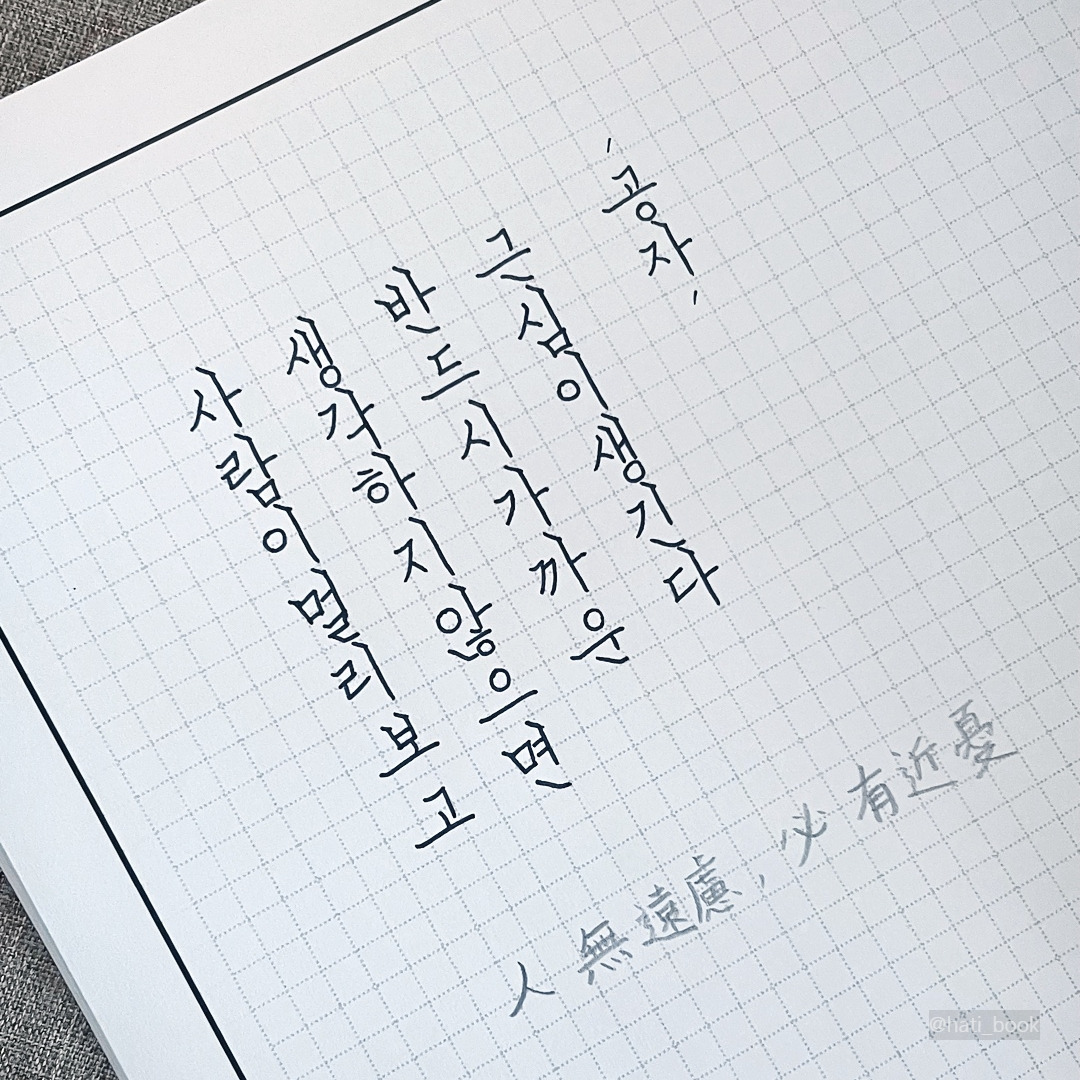 사람이멀리보고
생각하지않으면
반드시가까운
근심이생긴다
'공자'
人無遠慮, 必有近憂
@hati_book